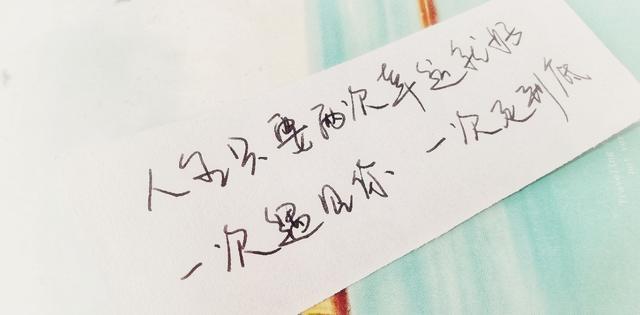 人生只要两次幸运就好
一次遇见你 一次走到底